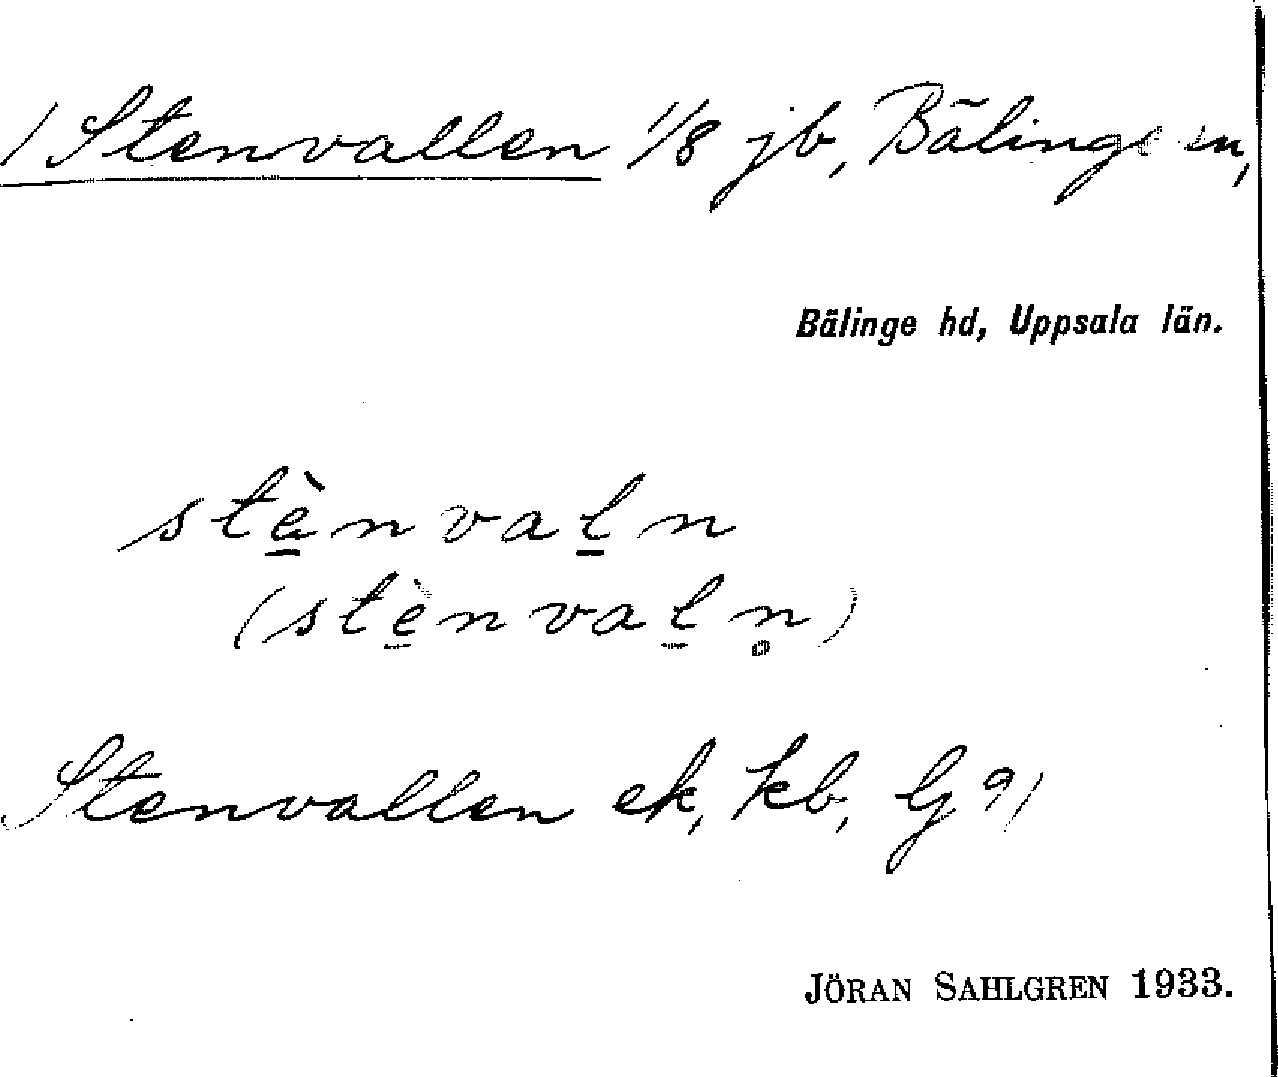 1 Stenvallen 1/8 jb, Bälinge sn,
Bälinge hd, Uppsala län.
stè̱nvaḻn
(stè̱nvaḻn̥)
Stenvallen ek, kb, G 91
JÖRAN SAHLGREN 1933.